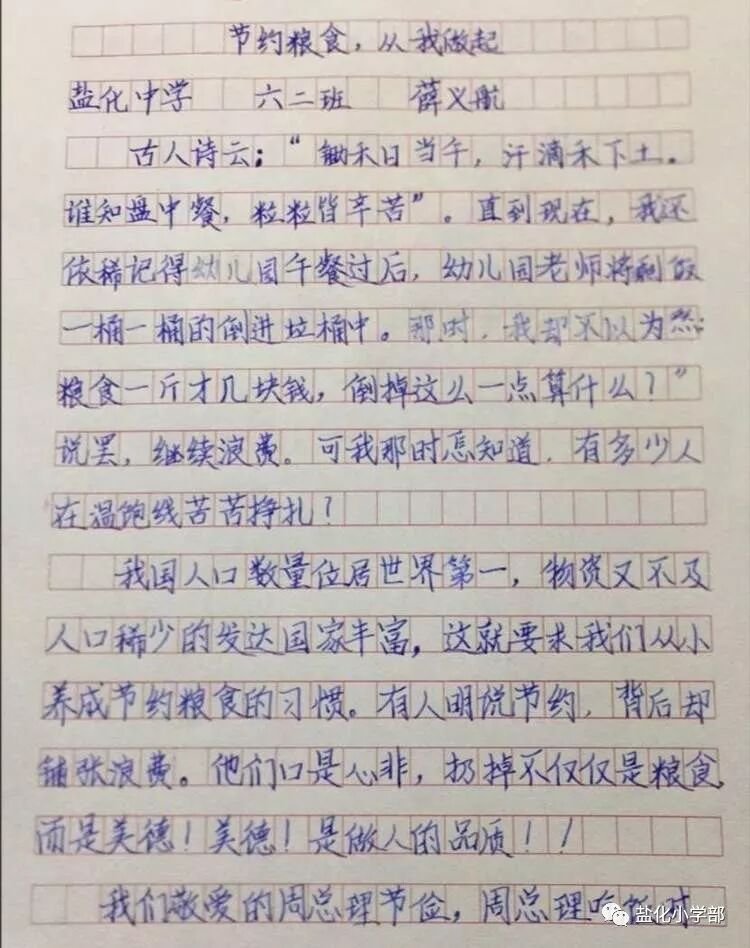 节约粮食，从我做起
盐化中学 六二班 薛义航
古人诗云：“锄禾日当午，汗滴禾下土。
谁知盘中餐，粒粒皆辛苦”。直到现在，我还
依稀记得幼儿园午餐过后，幼儿园老师将剩饭
一桶一桶的倒进垃桶中。那时，我却不以为然:
粮食一斤才几块钱，倒掉这么一点算什么？”
说罢，继续浪费。可我那时怎知道，有多少人
在温饱线苦苦挣扎？
我国人口数量位居世界第一，物资又不及
人口稀少的发达国家丰富，这就要求我们从小
养成节约粮食的习惯。有人明说节约，背后却
铺张浪费。他们口是心非，扔掉不仅仅是粮食，
而是美德！美德！是做人的品质！！
我们敬爱的周总理节俭，周总理吃饭时
盐化小学部